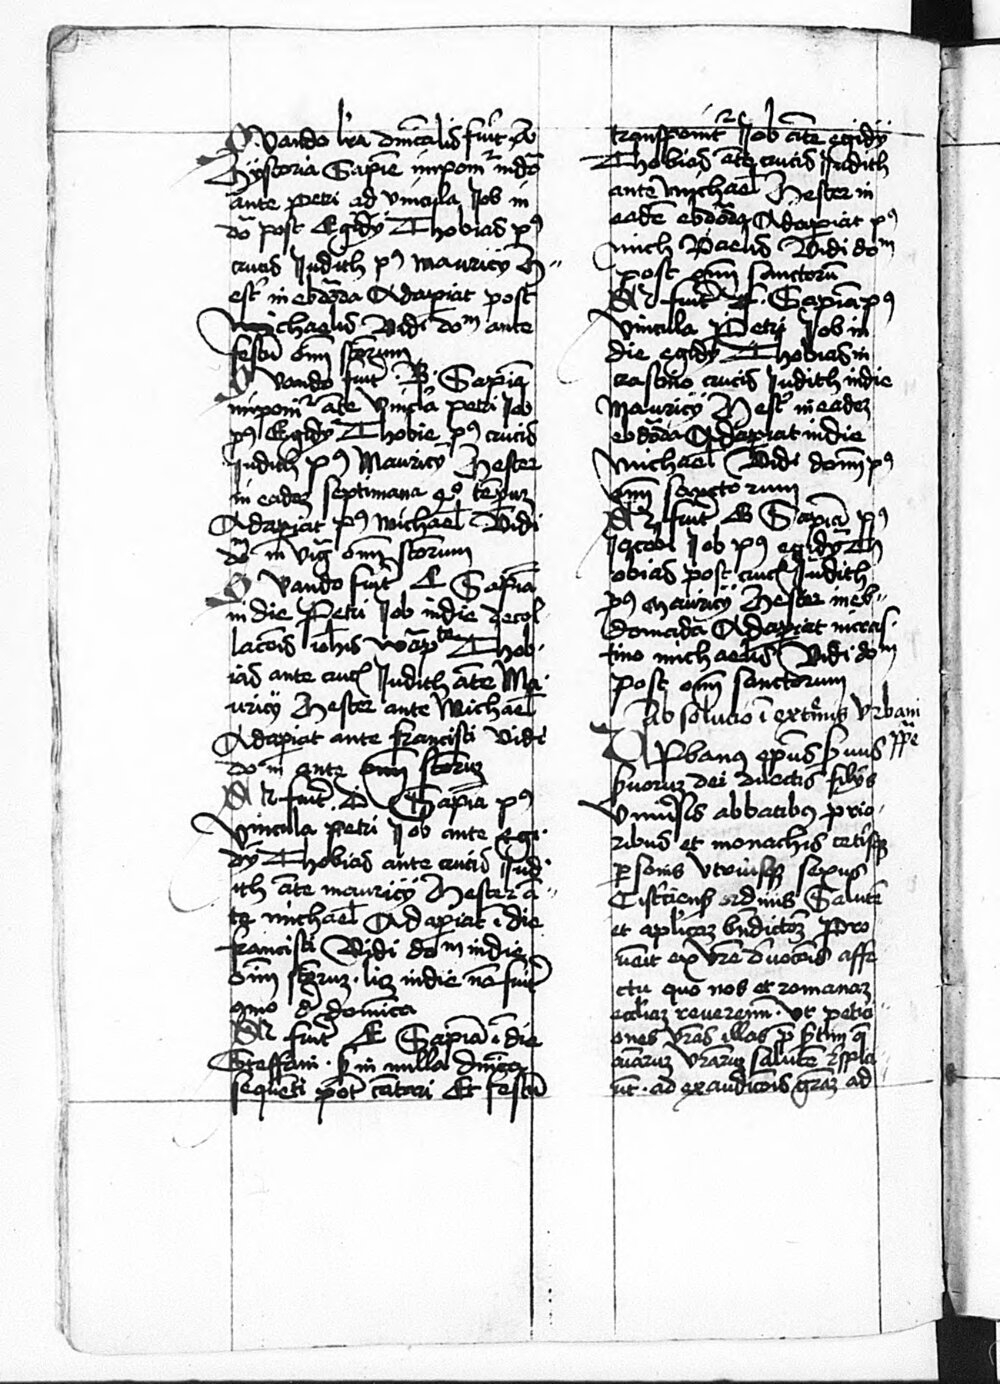 Quando lra dnicalis fuit A
Hystoria Sapie imponit in do
ante Petri ad vincula Job in
do post Egidy Thobias p9
crucis Judith p9 Mauricy H
est in ebdoda Adapiat post
Michaelis Vidi dom ante
festu om storum
Quando fuit B Sapia
imponit ate vincla petri Job
p9 Egidy Thobie p9 crucis
Judith p9 Mauricy Hester
in eadez septimana
Adapiat p9 Michael Vidi
dom in vig om storum
Quando fuit C Sapia
in die Petri Job in die decol
lacois iohis Thob
ias ante cruc Judith ate Ma
uricy Hester ante Michael
Adapiat ante francisci Vidi
dom ante om storum
Qn fuit D Sapia p9
vincula Petri Job ante egi
dy Thobias ante crucis Jud
ith ate mauricy Hester a
te michael Adapiat i die
francisci Vidi dom in die
om storum in die no fuit
domica
Qn fuit E Sapia i die
Steffani in nulla dnica
sequeti pot catari Et festu
transponit Job ate egidy
Thobias ate crucis Judith
ante Michael Hester in
eade ebdoda Adapiat p9
mich Vidi dom
post om sanctoru
Qn fuit F Sapia p9
vincula Petri Job in
die egidy Thobias in
crastino crucis Judith in die
Mauricy Hest in eadez
ebdoda Adapiat in die
Michael Vidi dom p9
om sanctorum
Qn fuit G Sapia p9
Jacobi Job p9 egidy Th
obias post cruc Judith
p9 Mauricy Hester in eb
domada Adapiat in cras
tino michaelis Vidi dom
post om sanctorum
Absolucio i extmis Vrbani
ppe
Vrbanus epus suus
suoruz dei dilectis filys
vniusis abbatibus prio
ribus et monachis cetisqz
psonis vtriusqz sexus
Cistciens ordinis Salute
et aplicaz bndictoz Pro
uenit ex vre deuocois affe
ctu quo nos et romanaz
eccliaz reueremi vt peticio
ones vras illas
aiaruz vraruz salute
ad exaudicois graz ad